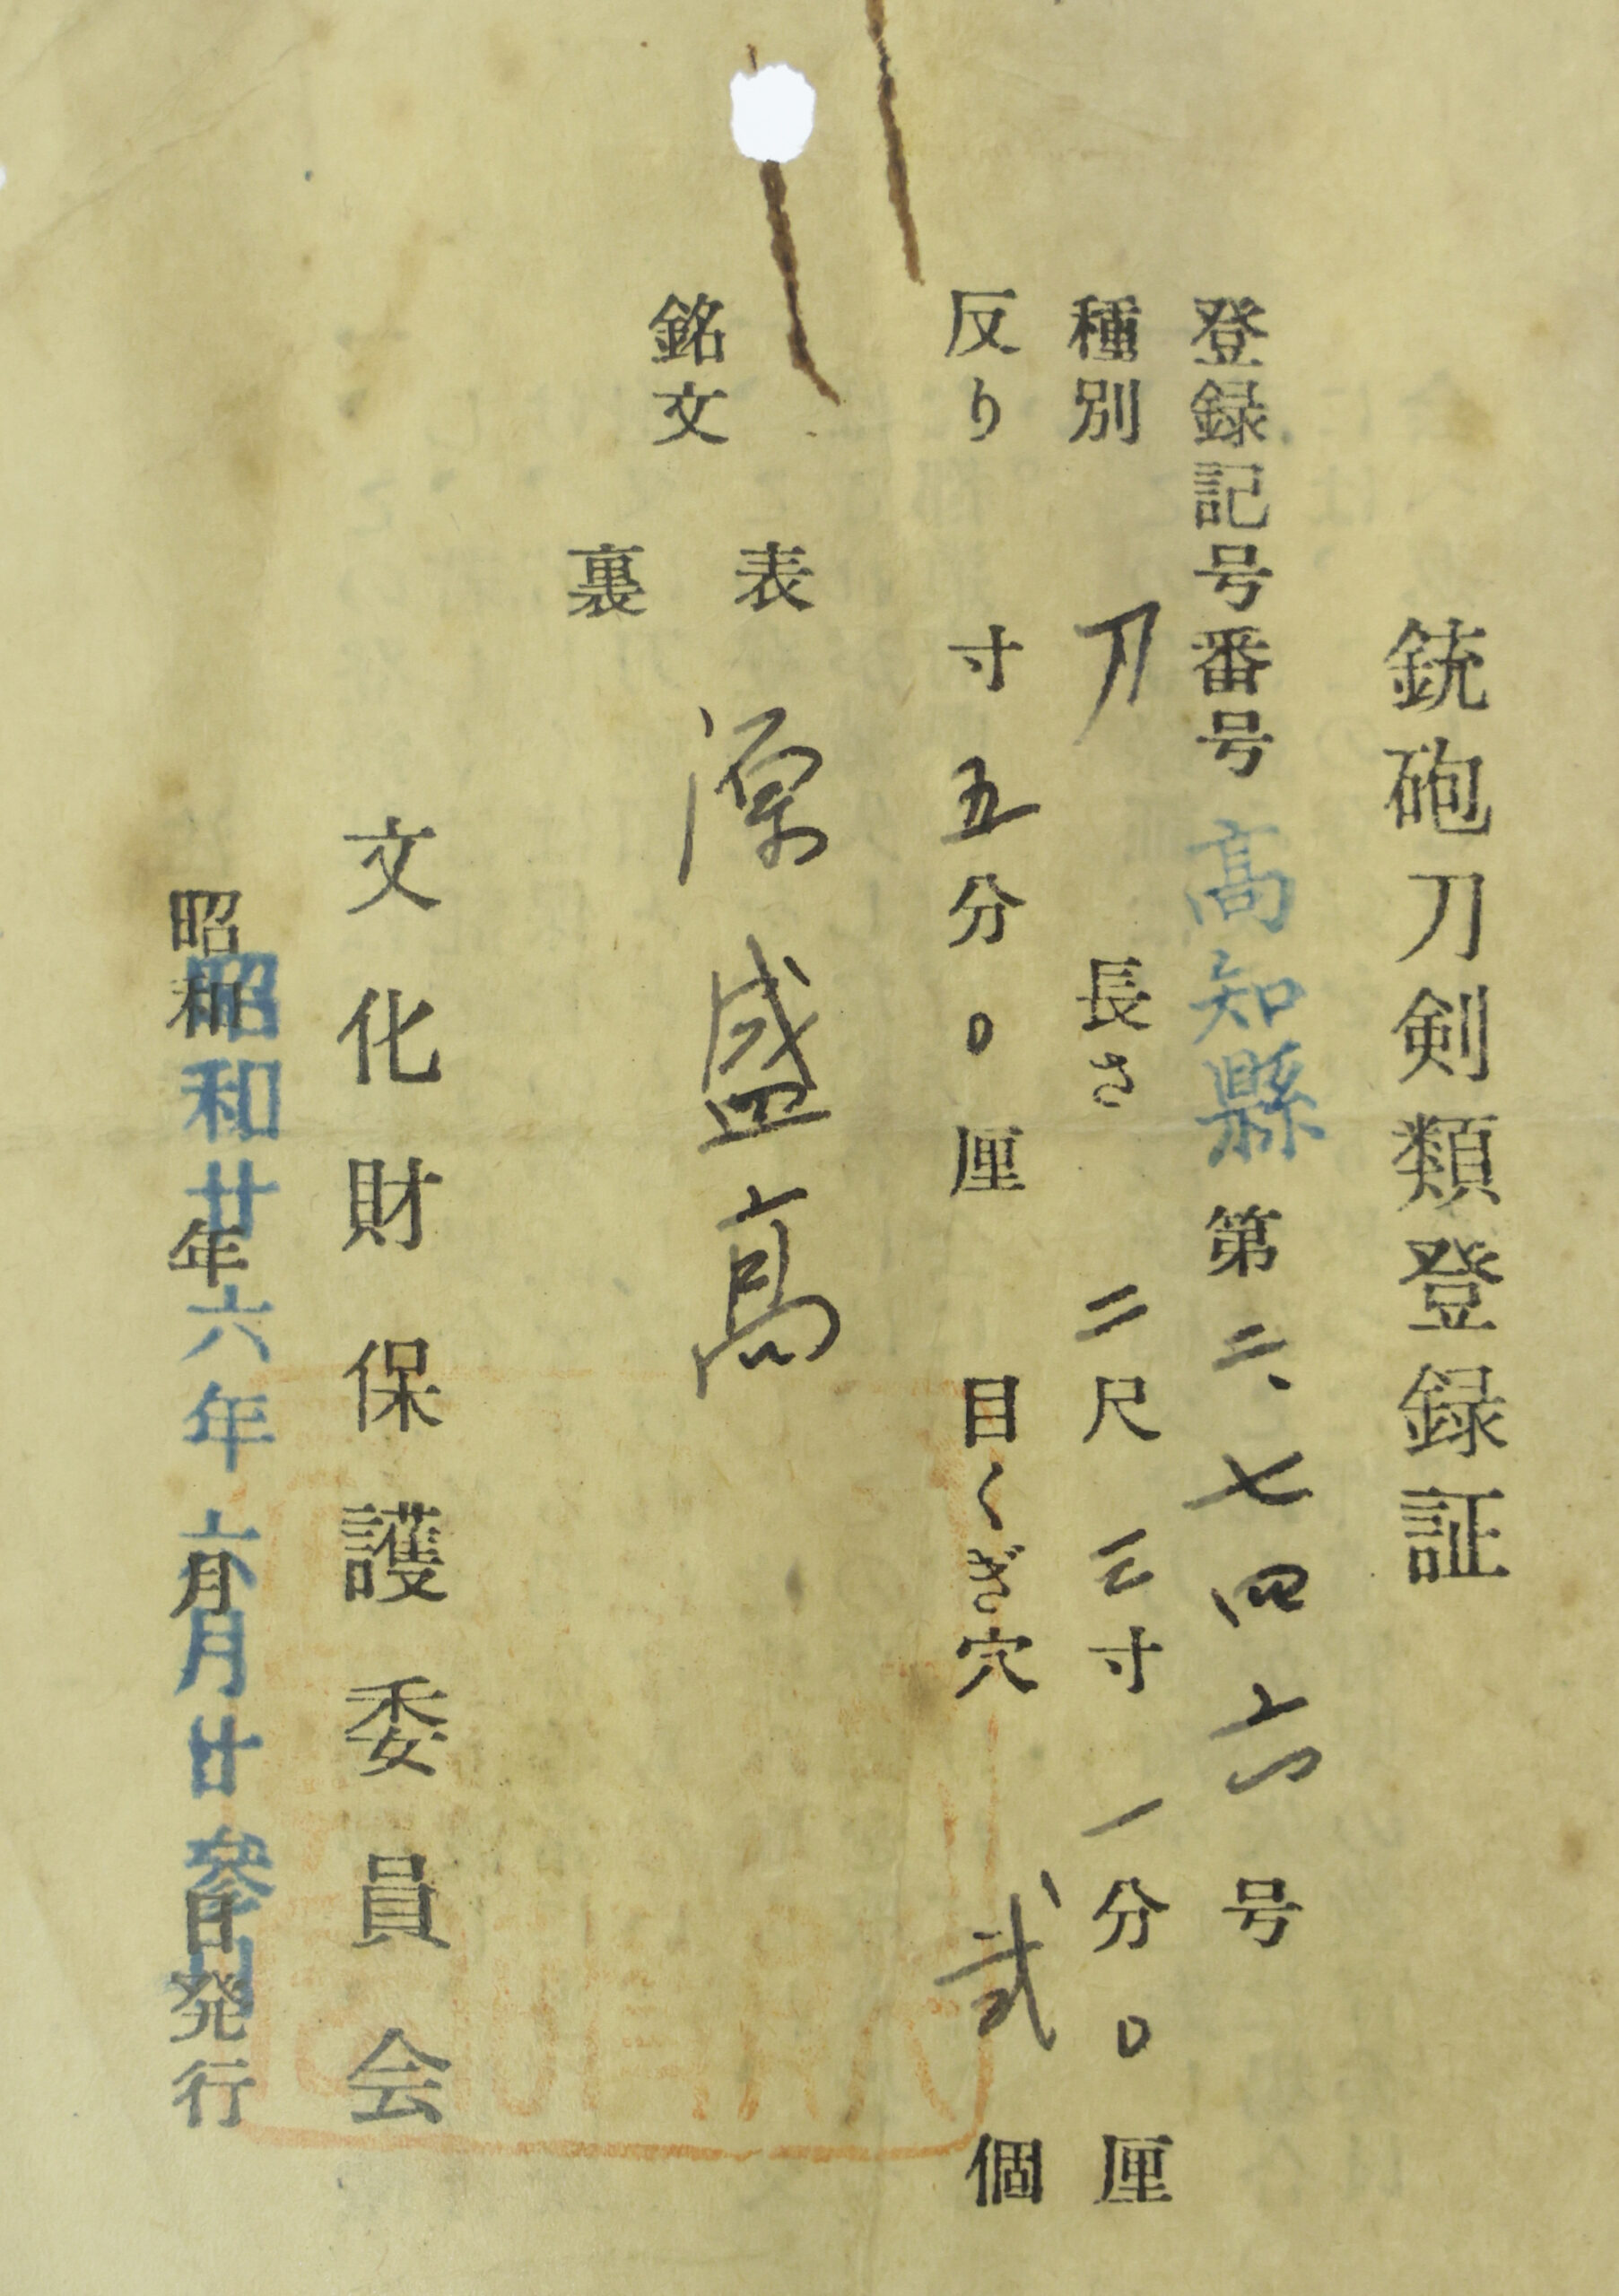 銃砲刀剣類登録証
登録記号番号 高知縣 第二、七四六号
種別 刀 長さ 二尺三寸一分〇厘
反り 寸五分〇厘 目くぎ穴 弐個
銘文
表 源盛高
裏
文化財保護委員会
昭和 年 月 日発行
昭和廿六年六月廿参日